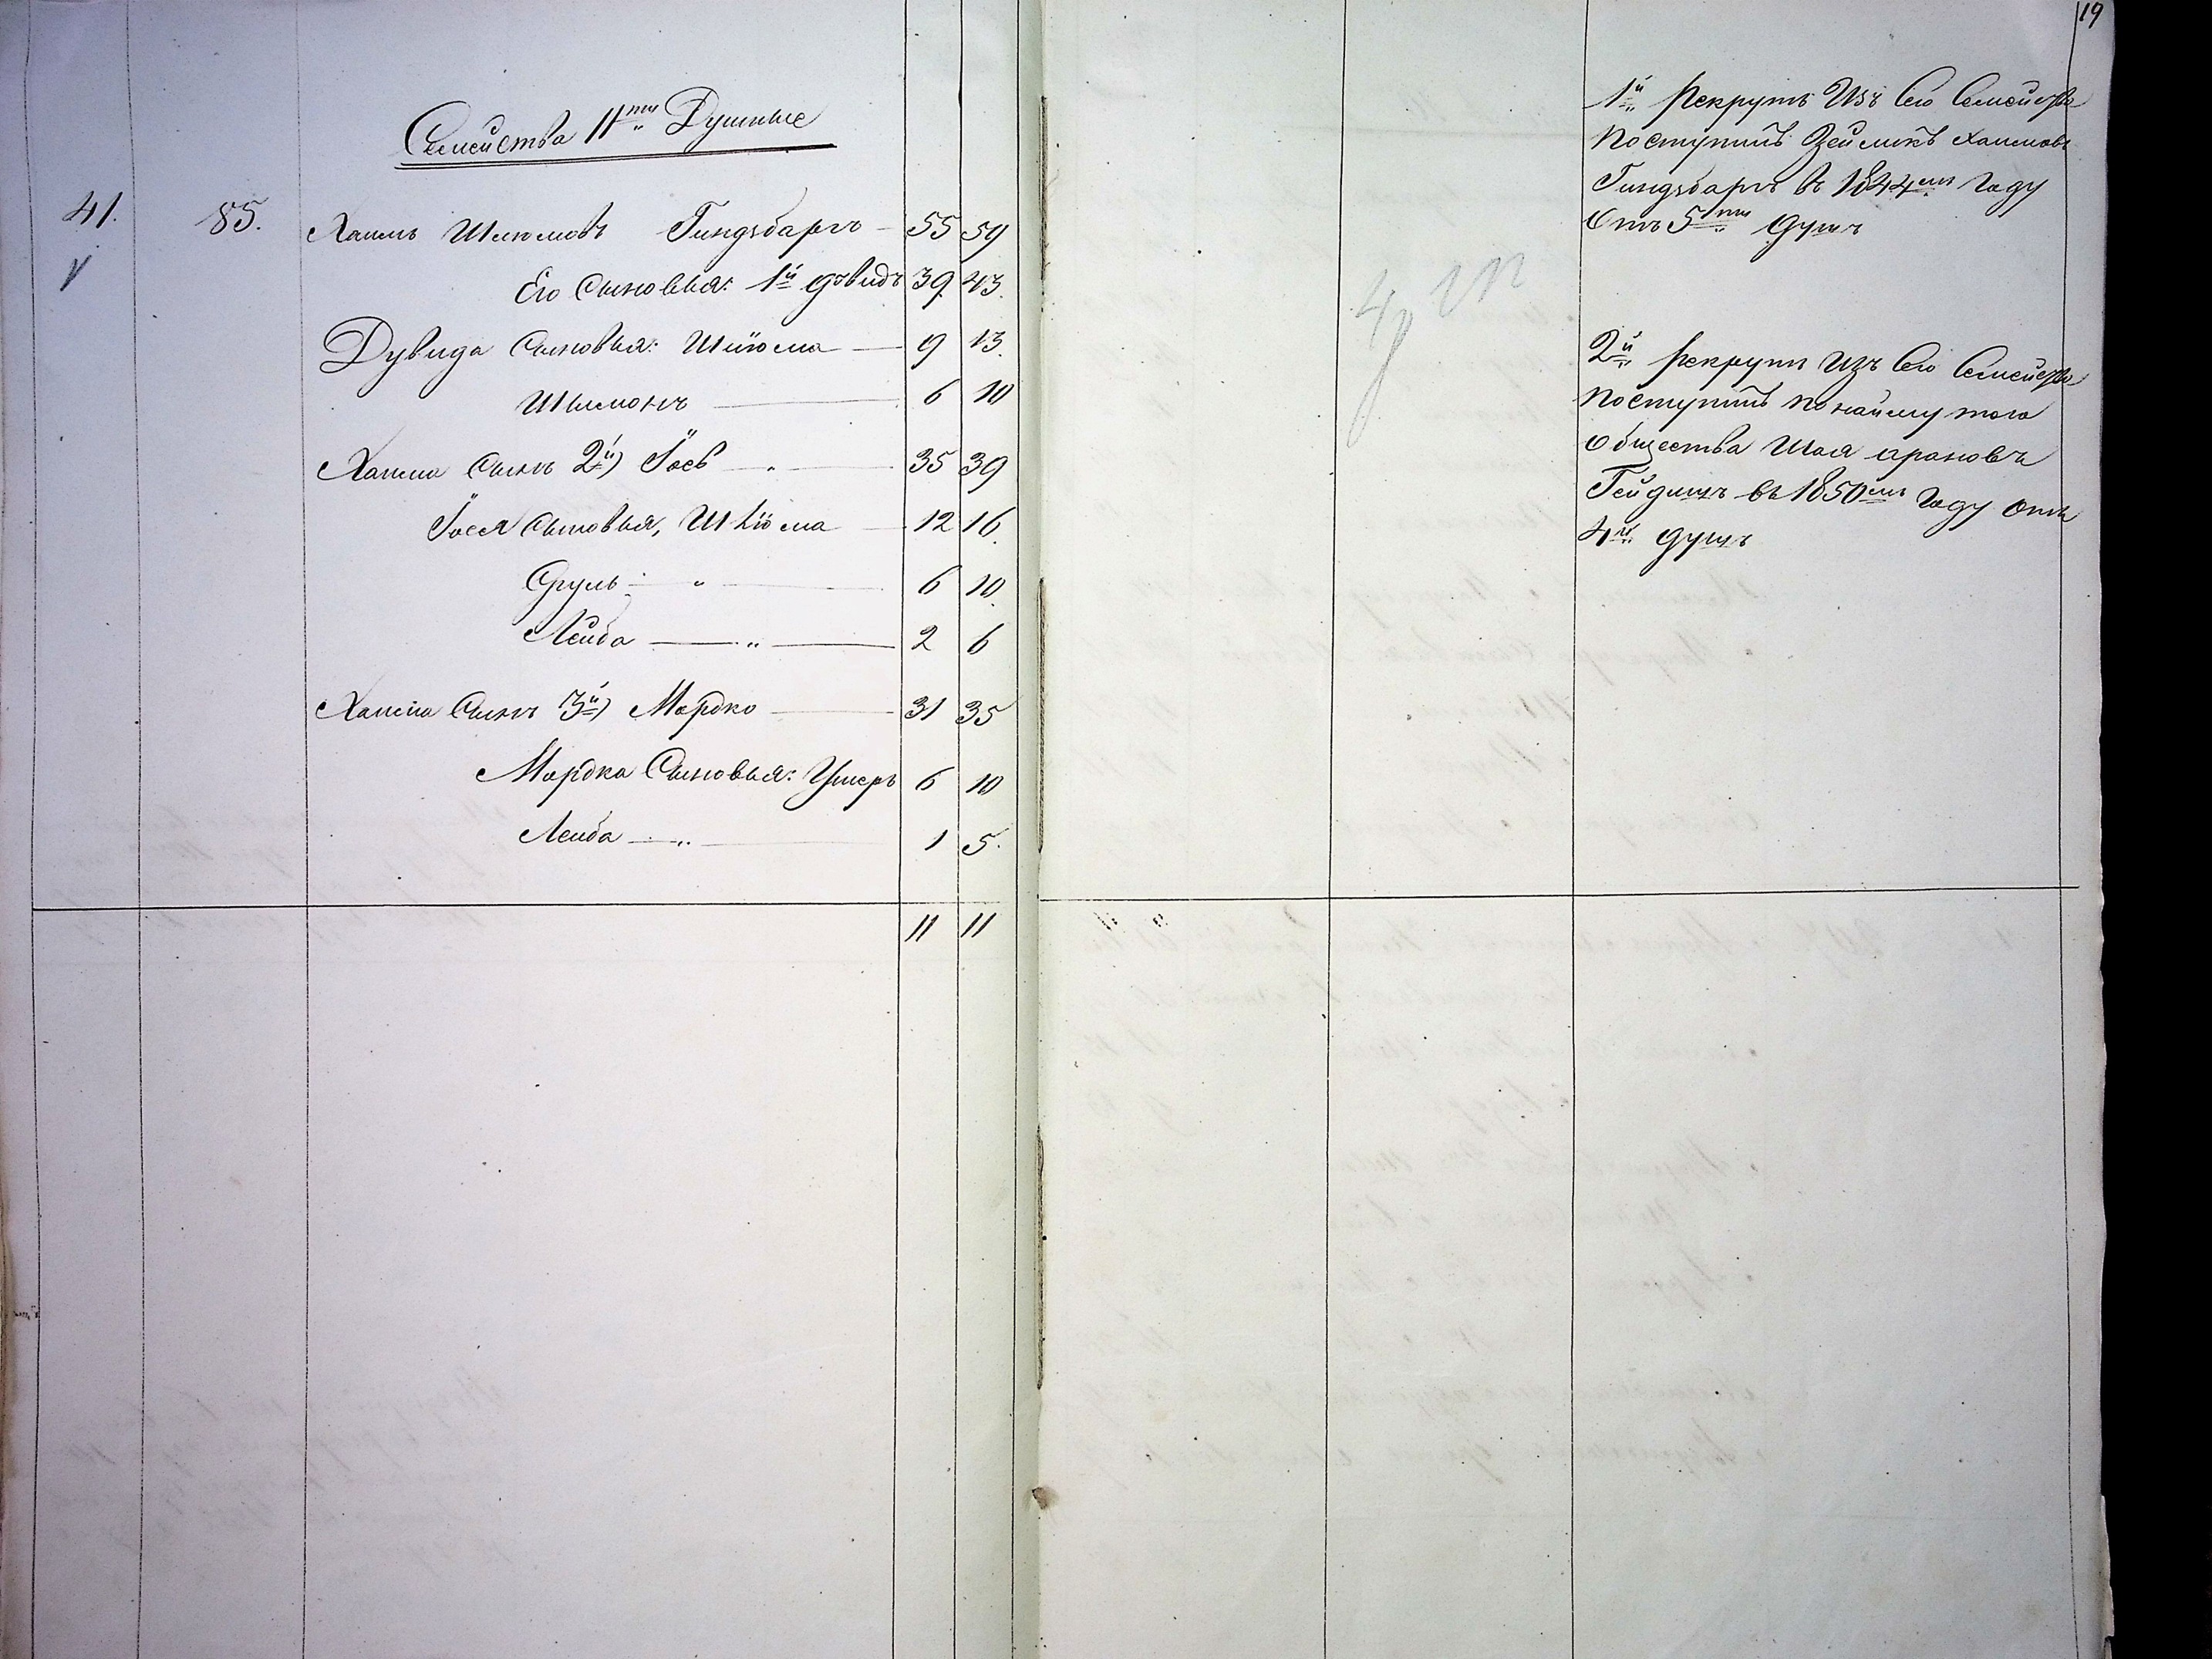 19
Семейства 11ти Душные
41. 85. Хаимъ Шлюмовъ Гиндзбаргъ 55 59
Его Сыновья: 1й дувидъ 39. 43.
Дувида Сыновья: Шлiома 9 13.
Шимонъ 6 10
Хаима Сынъ 2й) Iось 35 39
Iося Сыновья, Шлiома 12 16.
Сруль 6 10.
Лейба 2 6
Хаима Сынъ 3й) Мордко 31 35
Мордка Сыновья: Ушеръ 6 10
Леиба 1 5.
11 11
1й Рекрутъ Изъ Сего Семейства
поступилъ Зейликъ Хаимовъ
Гиндзбаргъ въ 1844мъ Году
Отъ 5ти душъ
2й рекрутъ Изъ Сего Семейства
поступилъ по найму того
общества Шая арановъ
Гейдишъ въ 1850мъ Году отъ
4й душъ